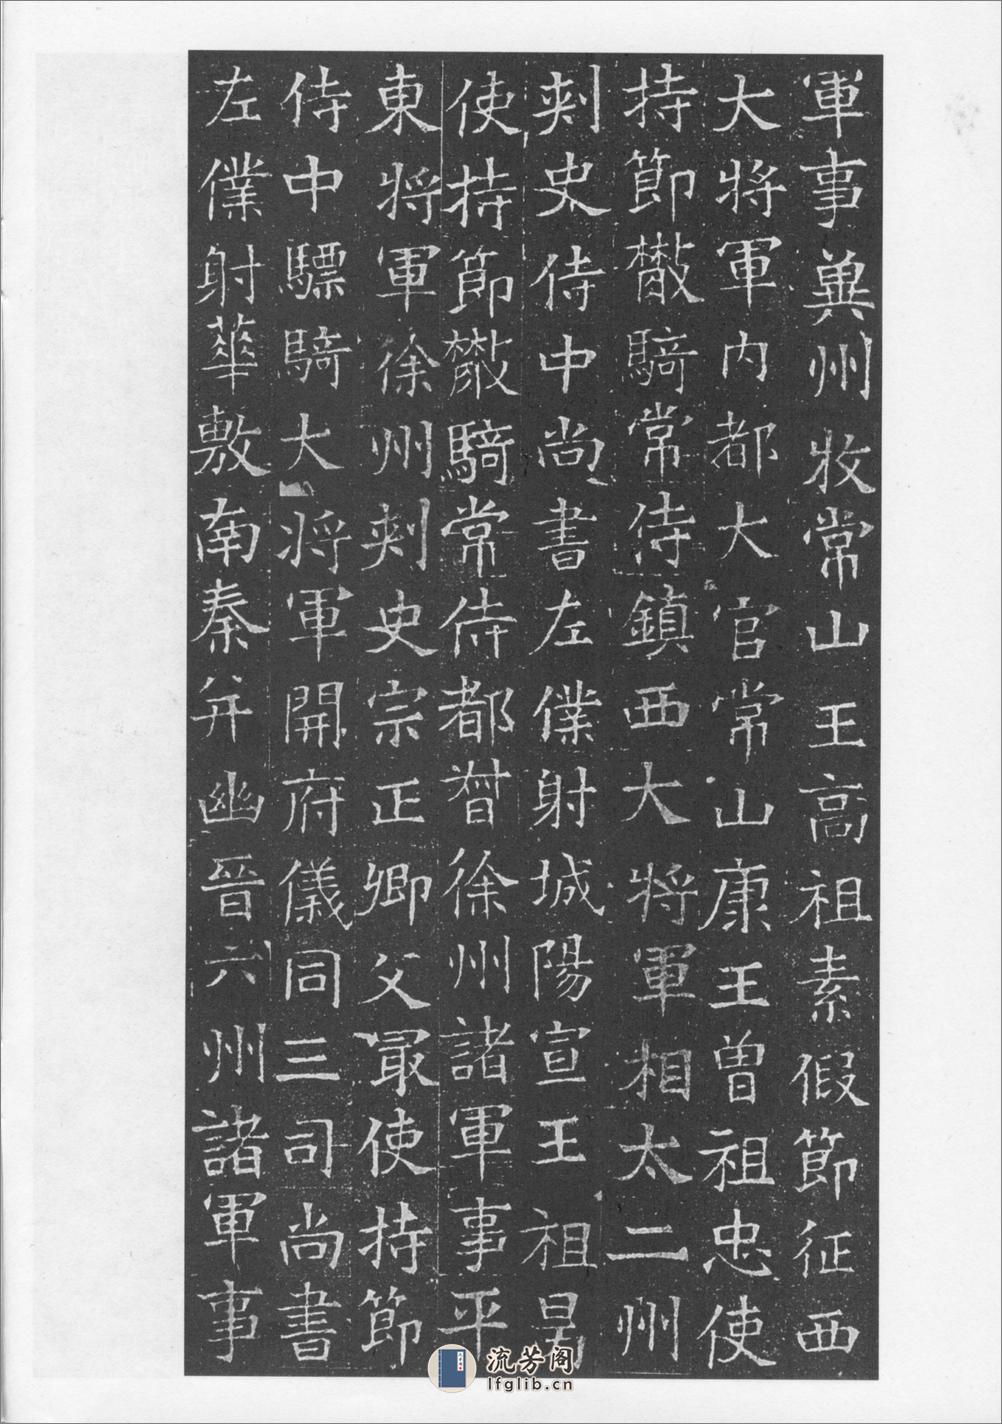 軍事冀州牧常山王高祖素假節征西
大將軍內都大官常山康王曾祖忠使
持節散騎常侍鎮西大將軍相太二州
刺史侍中尚書左僕射城陽宣王祖昺
使持節散騎常侍都督徐州諸軍事平
東將軍徐州刺史宗正卿父最使持節
侍中驃騎大將軍開府儀同三司尚書
左僕射華敷南秦并幽晉六州諸軍事
流芳阁
lfglib.cn